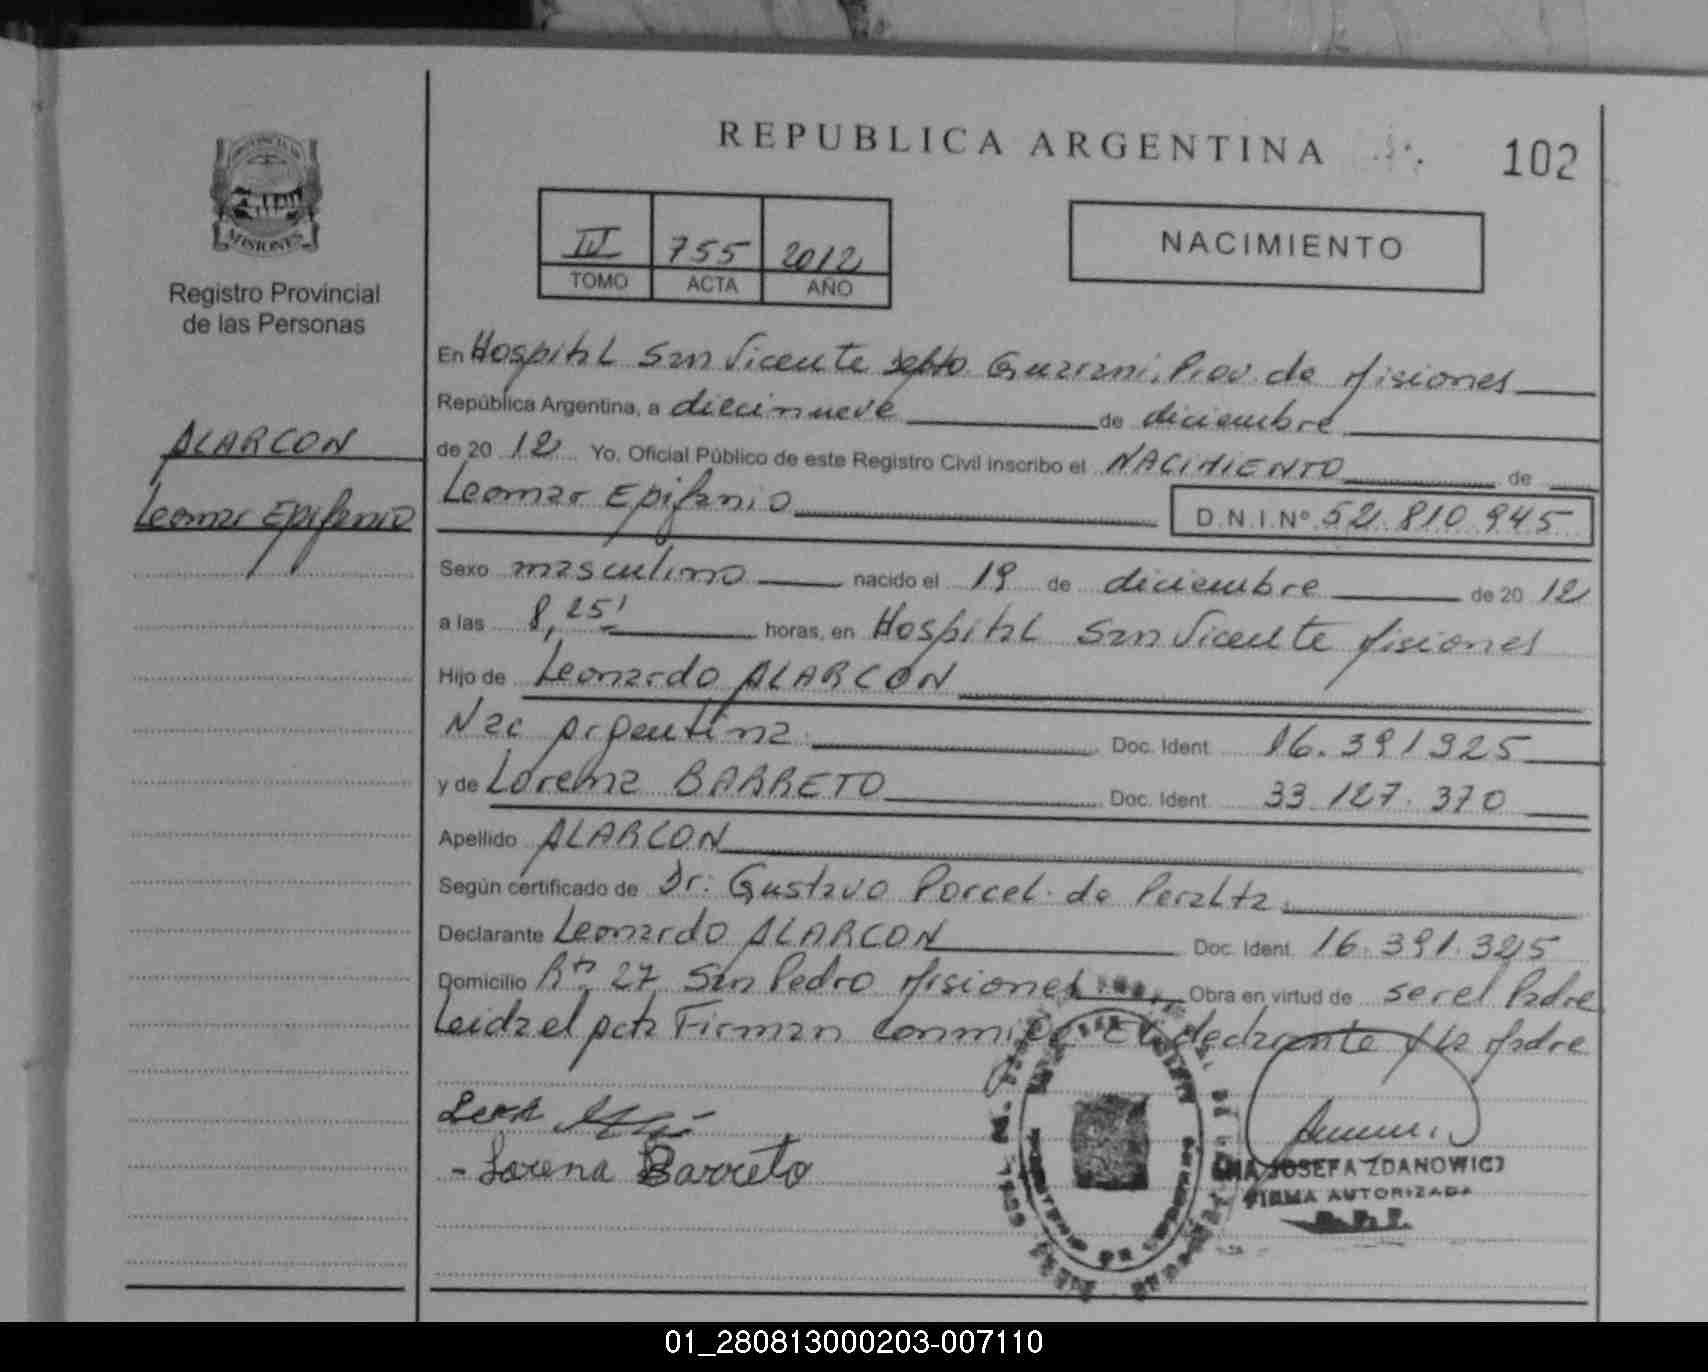 REPUBLICA ARGENTINA
102
MISIONES
Registro Provincial
de las Personas
755 2012
TOMO ACTA AÑO
NACIMIENTO
ALARCON
Leomar Epifanio
En Hospital San Vicente depto Guarani, Prov. de Misiones
República Argentina, a diecinueve de diciembre
de 20 12 Yo, Oficial Público de este Registro Civil inscribo el NACIMIENTO de
Leomar Epifanio D.N.I.Nº 52.810.945
Sexo masculino nacido el 19 de diciembre de 20 12
a las 8,25' horas, en Hospital San Vicente Misiones
Hijo de Leonardo ALARCON
Nac Argentina Doc. Ident. 16.391325
y de Lorena BARRETO Doc. Ident. 33 127.370
Apellido ALARCON
Según certificado de Dr. Gustavo Porcel de Peralta
Declarante Leonardo ALARCON Doc. Ident. 16.391.325
Domicilio Rta 27 San Pedro Misiones Obra en virtud de ser el Padre
Leida el acta Firman conmigo El declarante y la Madre
Lorena Barreto
JOSEFA ZDANOWICZ
FIRMA AUTORIZADA
01_280813000203-007110